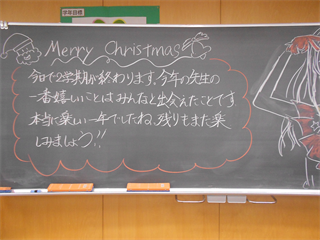 学年目標
Merry Christmas
今日で2学期が終わります。今年の先生の
一番嬉しいことはみんなと出会えたことです
本当に楽しい一年でしたね。残りもまた楽
しみましょう!!